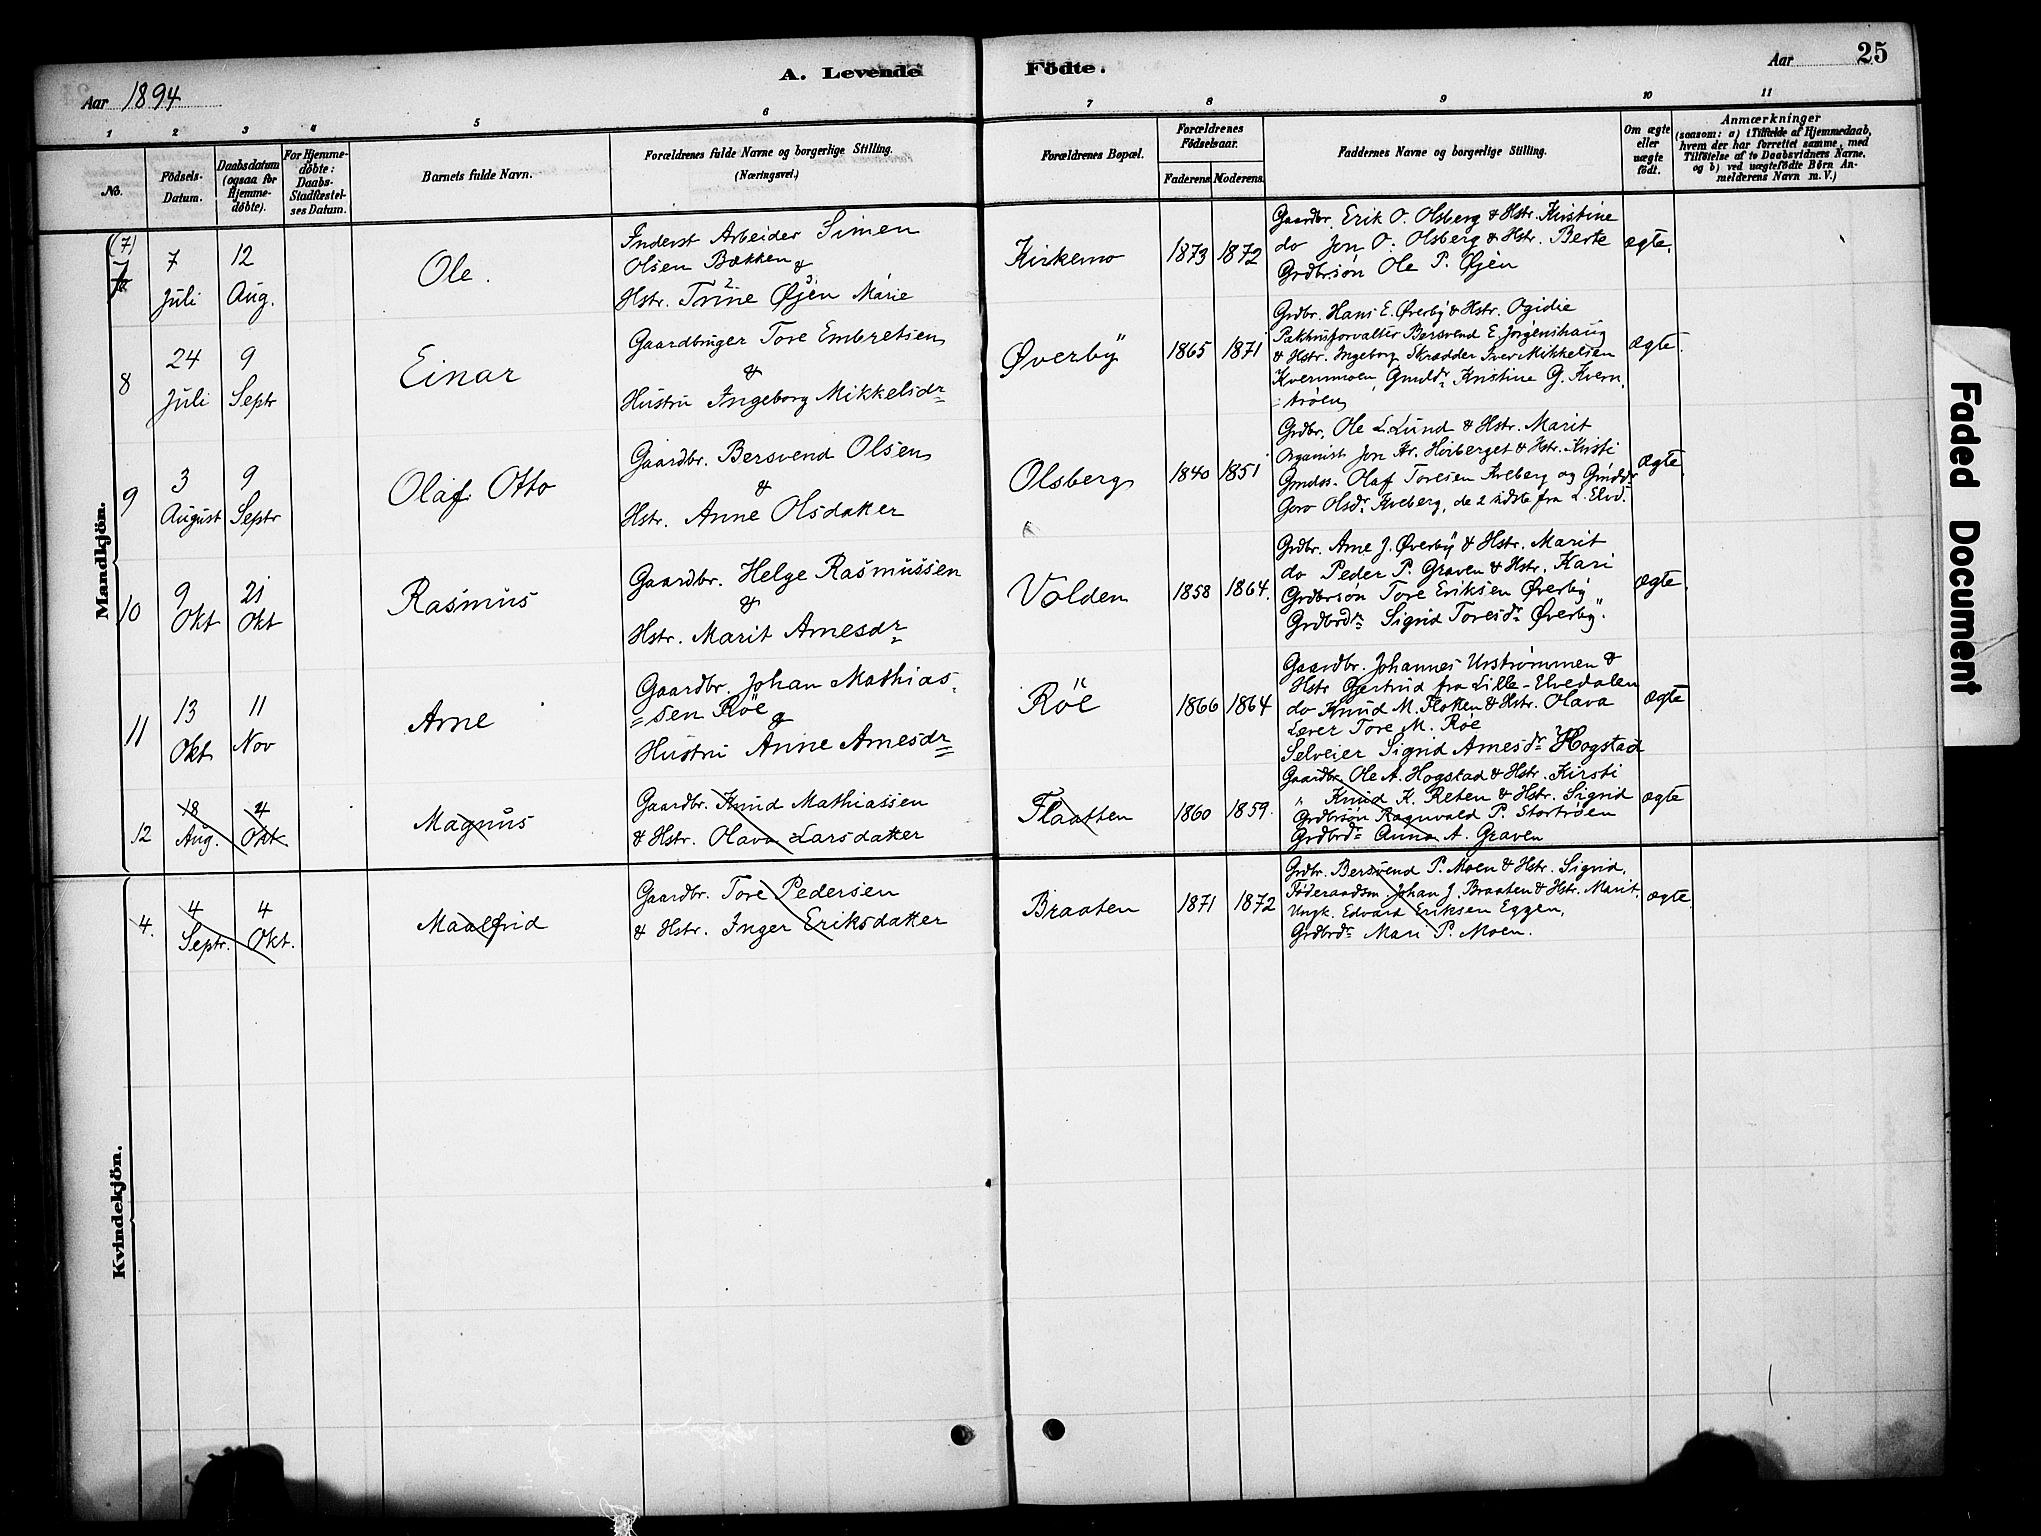 A. Levende Födte.
Aar 1894
Aar 25
1 2 3 4 5 6 7 8 9 10 11
No.
Födsels-
Datum.
Daabsdatum
(ogsaa for
Hjemme-
döbte).
For Hjemme-
döbte:
Daabs-
Stadfæstel-
ses Datum.
Barnets fulde Navn.
Forældrenes fulde Navne og borgerlige Stilling.
(Næringsvei.)
Forældrenes Bopæl.
Forældrenes
Födselsaar.
Faderens. Moderens.
Faddernes Navne og borgerlige Stilling.
Om ægte
eller
uægte
født.
Anmærkninger
(saasom: a) i Tilfælde af Hjemmedaab,
hvem der har forrettet samme, med
Tilföielse af to Daabsvidners Navne,
og b) ved uægtefödte Börn An-
melderens Navn m. V.)
Mandkjön.
(7)
7
7
Juli
12
Aug.
Ole.
Inderst Arbeider Simen
Olsen Bækken &
Hstr. Trine 2 Øjen 3 Marie
Kirkemo
1873 1872
Gaardbr. Erik O. Olsberg & Hstr. Kirstine
do Jon O. Olsberg & Hstr. Berte
Grdbrsön Ole P. Øjen
ægte.
8
24
Juli
9
Septr
Einar
Gaardbruger Tore Embretsen
&
Hustru Ingeborg Mikkelsdr
Øverby
1865 1871
Grdbr. Hans E. Øverby & Hstr. Ogidie
Pakhusforvalter Bersvend E. Jörgenshaug
& Hstr. Ingeborg Skrædder Iver Mikkelsen
Kvernmoen, Gmldr Kristine G. Kvern
trøen
ægte.
9
3
August
9
Septr
Olaf Otto
Gaardbr. Bersvend Olsen
&
Hstr. Anne Olsdatter
Olsberg
1840 1851
Grdbr. Ole L. Lund & Hstr. Marit
Organist Jon Kr. Horberget & Hstr. Kirsti
Olaf Toresen Kveberg og
Goro Olsdr Kveberg, de 2 sidste fra L. Elvd.
ægte
10
9
Okt
21
Okt
Rasmus
Gaardbr. Helge Rasmussen
&
Hstr. Marit Arnesdr
Volden
1858 1864.
Grdbr. Arne J. Øverby & Hstr. Marit
do Peder P. Graven & Hstr. Kari
Grdbrsön Tore Eriksen Øverby
Grdbrdr Sigrid Toresdr Øverby.
ægte.
11
13
Okt
11
Nov
Arne
Gaardbr. Johan Mathias-
sen Röe
&
Hustru Anne Arnesdr
Röe
1866 1864
Gaardbr. Johannes Urstrømmen &
Hstr Gjertrud fra Lille-Elvedalen
do Knud M. Floken & Hstr. Olava
Lærer Tore M. Røe
Selveier Sigrid Arnesdr Hogstad
ægte
12
18
Aug.
4
Okt.
Magnus
Gaardbr. Knud Mathiassen
& Hstr. Olava Larsdatter
Flaatten
1860 1859.
Gaardbr Ole A. Hogstad & Hstr. Kirsti
" Knud K. Reten & Hstr. Sigrid
Grdbrsön Ragnvald P. Stortrøen
Grdbrdr Anna A. Graven
ægte
Kvindekjön.
4.
4
Septr.
4
Okt.
Maalfrid
Gaardbr. Tore Pedersen
& Hstr. Inger Eriksdatter
Braaten
1871 1872
Grdbr. Bersvend P. Moen & Hstr. Sigrid,
Föderaadsm. Johan J. Braaten & Hstr. Marit.
Ungk. Edvard Eriksen Eggen,
Grdbrdr Mari P. Moen.
ægte.
Faded Document